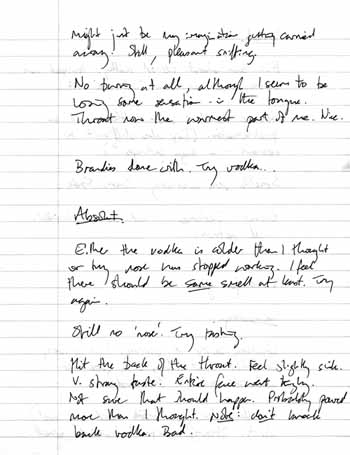 Might just be my imagination getting carried
away. Still, pleasant sniffing.
No burning at all, although I seem to be
losing some sensation in the tongue.
Throat now the warmest part of me. Nice.
Brandies done with. Try vodka...
Absolut.
Either the vodka is colder than I thought
or my nose has stopped working. I feel
there should be some smell at least. Try
again.
Still no 'nose'. Try tasting.
Hit the back of the throat. Feel slightly sick.
V. strong taste. Entire face went tingly.
Not sure that should happen. Probably poured
more than I thought. Note: don't knock
back vodka. Bad.